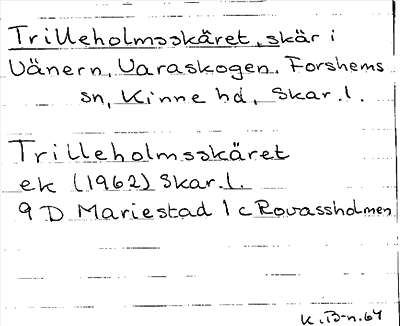 Trilleholmsskäret, skär i
Vänern, Varaskogen, Forshems
sn, Kinne hd, Skar.l.
Trilleholmsskäret
ek (1962) Skar.l.
9 D Mariestad 1 c Rovassholmen
K.B-n.64